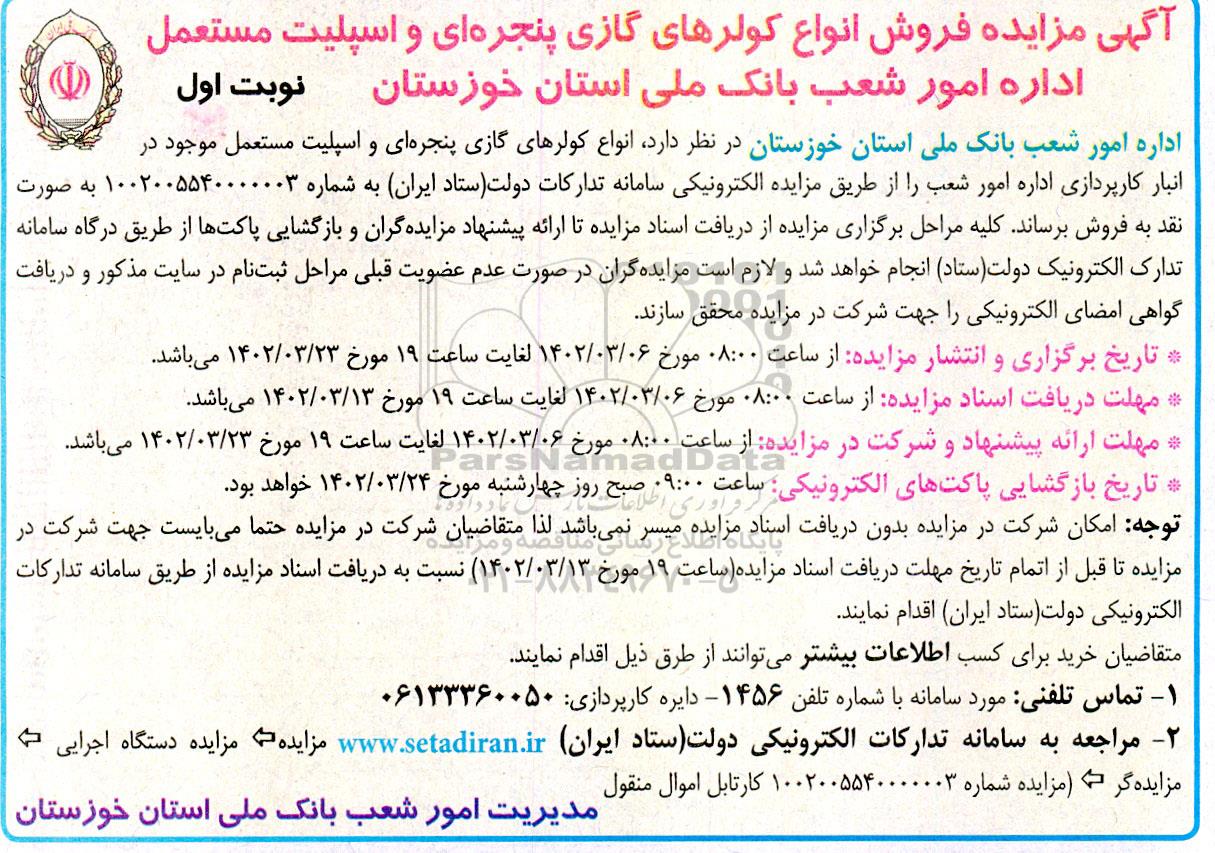 آگهی مزایده فروش انواع کولرهای گازی پنجره‌ای و اسپلیت مستعمل
اداره امور شعب بانک ملی استان خوزستان
نوبت اول
اداره امور شعب بانک ملی استان خوزستان در نظر دارد، انواع کولرهای گازی پنجره‌ای و اسپلیت مستعمل موجود در
انبار کارپردازی اداره امور شعب را از طریق مزایده الکترونیکی سامانه تدارکات دولت(ستاد ایران) به شماره ۱۰۰۲۰۰۵۵۴۰۰۰۰۰۰۳ به صورت
نقد به فروش برساند. کلیه مراحل برگزاری مزایده از دریافت اسناد مزایده تا ارائه پیشنهاد مزایده‌گران و بازگشایی پاکت‌ها از طریق درگاه سامانه
تدارک الکترونیک دولت(ستاد) انجام خواهد شد و لازم است مزایده‌گران در صورت عدم عضویت قبلی مراحل ثبت‌نام در سایت مذکور و دریافت
گواهی امضای الکترونیکی را جهت شرکت در مزایده محقق سازند.
* تاریخ برگزاری و انتشار مزایده: از ساعت ۰۸:۰۰ مورخ ۱۴۰۲/۰۳/۰۶ لغایت ساعت ۱۹ مورخ ۱۴۰۲/۰۳/۲۳ می‌باشد.
* مهلت دریافت اسناد مزایده: از ساعت ۰۸:۰۰ مورخ ۱۴۰۲/۰۳/۰۶ لغایت ساعت ۱۹ مورخ ۱۴۰۲/۰۳/۱۳ می‌باشد.
* مهلت ارائه پیشنهاد و شرکت در مزایده: از ساعت ۰۸:۰۰ مورخ ۱۴۰۲/۰۳/۰۶ لغایت ساعت ۱۹ مورخ ۱۴۰۲/۰۳/۲۳ می‌باشد.
ParsNamadData
* تاریخ بازگشایی پاکت‌های الکترونیکی: ساعت ۰۹:۰۰ صبح روز چهارشنبه مورخ ۱۴۰۲/۰۳/۲۴ خواهد بود.
توجه: امکان شرکت در مزایده بدون دریافت اسناد مزایده میسر نمی‌باشد لذا متقاضیان شرکت در مزایده حتما می‌بایست جهت شرکت در
پایگاه اطلاع رسانی مناقصه و مزایده
مزایده تا قبل از اتمام تاریخ مهلت دریافت اسناد مزایده(ساعت ۱۹ مورخ ۱۴۰۲/۰۳/۱۳) نسبت به دریافت اسناد مزایده از طریق سامانه تدارکات
۰۲۱-۸۸۳۴۹۶۷۰-۵
الکترونیکی دولت(ستاد ایران) اقدام نمایند.
متقاضیان خرید برای کسب اطلاعات بیشتر می‌توانند از طرق ذیل اقدام نمایند.
۱- تماس تلفنی: مورد سامانه با شماره تلفن ۱۴۵۶- دایره کارپردازی: ۰۶۱۳۳۳۶۰۰۵۰
۲- مراجعه به سامانه تدارکات الکترونیکی دولت(ستاد ایران) www.setadiran.ir مزایده⇦ مزایده دستگاه اجرایی ⇦
مزایده‌گر ⇦ (مزایده شماره ۱۰۰۲۰۰۵۵۴۰۰۰۰۰۰۳ کارتابل اموال منقول
مدیریت امور شعب بانک ملی استان خوزستان